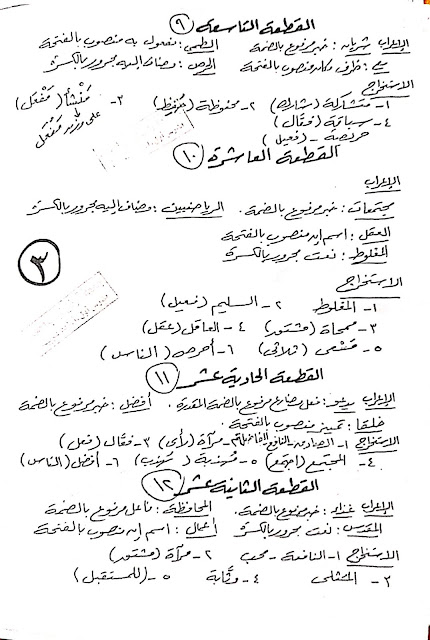 القطعة التاسعة ٩
الإعراب شريان : خبر مرفوع بالضمة الطمي : مفعول به منصوب بالفتحة
ظرف مكان منصوب بالفتحة مضاف إليه مجرور بالكسرة
الاستخراج
١- متشاركة (شارك) ٢- محفوظة (حفظ) ٣- منشأ (مفعل)
على وزن مفعل
٤- سباقة (فعّال)
حريصة - (فعيل)
القطعة العاشرة ١٠
الإعراب
مجتمعات : خبر مرفوع بالضمة. الرياضيين : مضاف إليه مجرور بالكسرة
العقل : اسم إن منصوب بالفتحة
المغلوط : نعت مجرور بالكسرة
٣
الاستخراج
١- المغلوط ٢- السليم (فعيل)
٣- ممحاة (مشتق) ٤- العاقل (عقل)
٥- (ثلاثي) ٦- أحرص (الناس)
القطعة الحادية عشر ١١
الإعراب يدعو : فعل مضارع مرفوع بالضمة المقدرة. أفضل : خبر مرفوع بالضمة
خلقا : تمييز منصوب بالفتحة
الاستخراج ١- الصادق - النافع ٢- مرآة (رأى) ٣- فعّال (فعل)
٤- المجتمع (اجتمع) ٥- مهذبة (تهذب) ٦- أفضل (الناس)
القطعة الثانية عشر ١٢
الإعراب غذاء : خبر مرفوع بالضمة. المحافظة : فاعل مرفوع بالضمة
المقدس : نعت مجرور بالكسرة أعمال : اسم إن منصوب بالفتحة
الاستخراج ١- النافعة - محب ٢- مرآة (مشتق)
٣- المثلى ٤- وثّابة ٥- (للمستقبل)